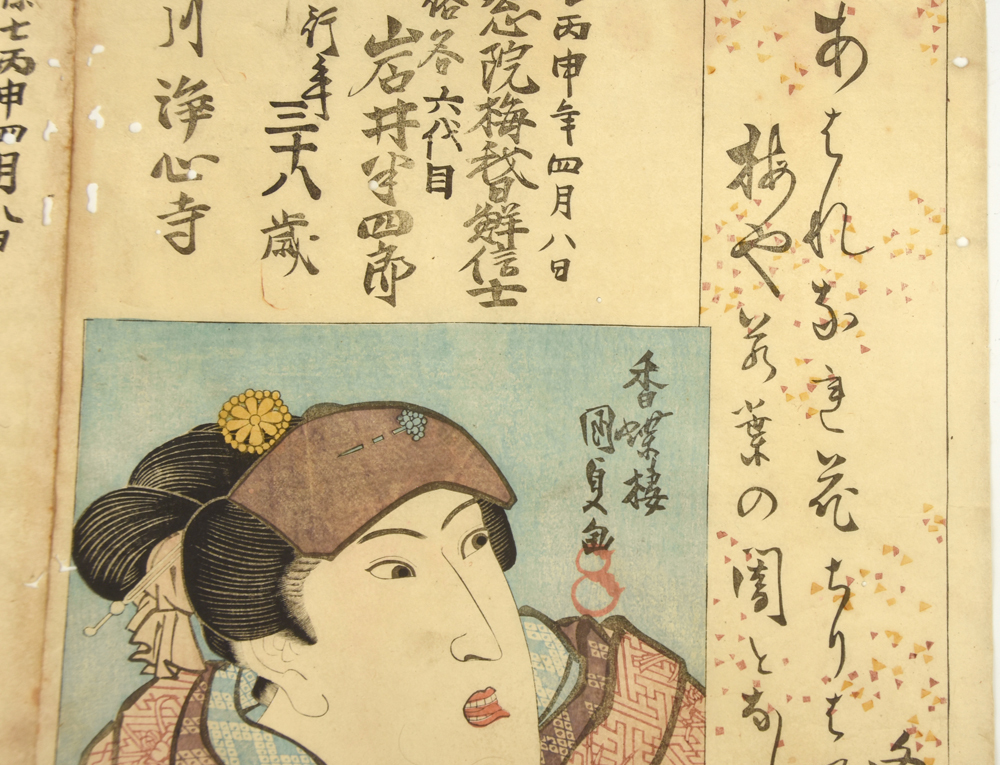 あはれなる花ちりは
梅や若葉の闇となし
丙申年四月八日
念院梅誉鮮信士
俗名六代目
岩井半四郎
行年三十八歳
川浄心寺
香蝶楼
國貞画
七丙申四月八日